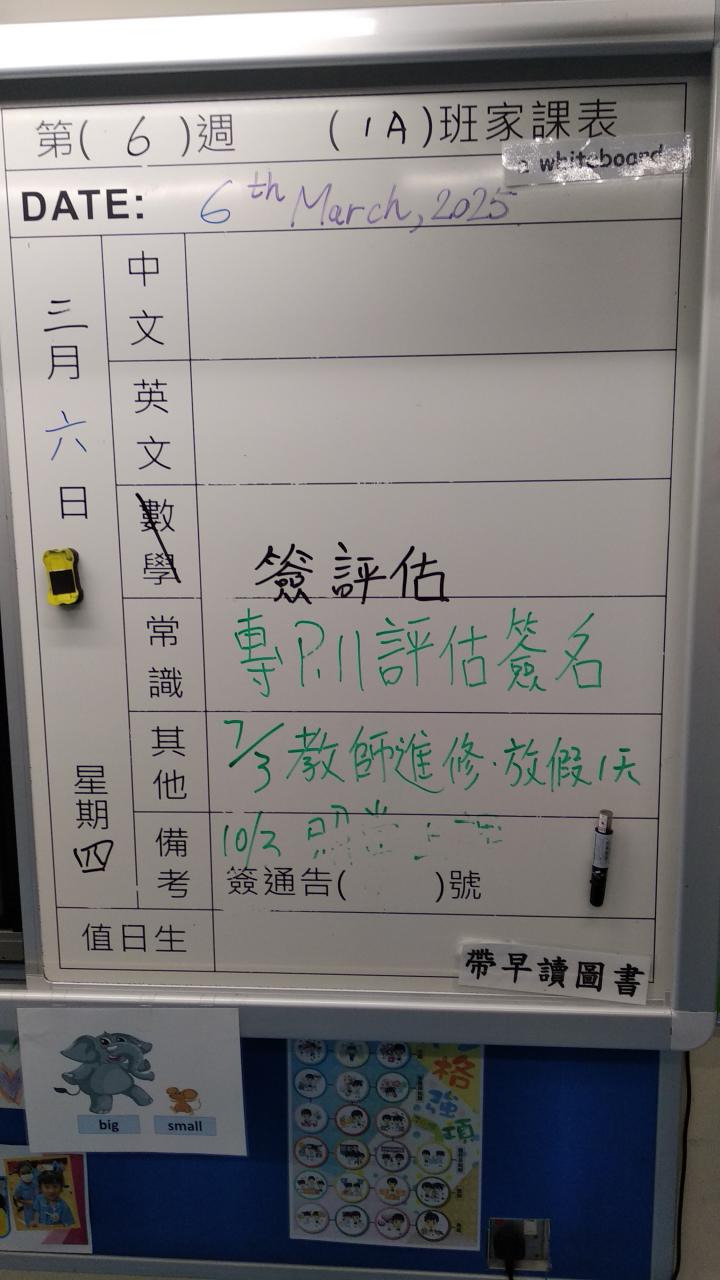 第( 6 )週 (1A)班家課表
whiteboard
DATE: 6th March, 2025
三月六日
星期四
中文
英文
數學 簽評估
常識 專P.11評估簽名
其他 7/3 教師進修.放假1天
備考 10/2 照常上
簽通告( )號
值日生
帶早讀圖書
big small
格
強
項